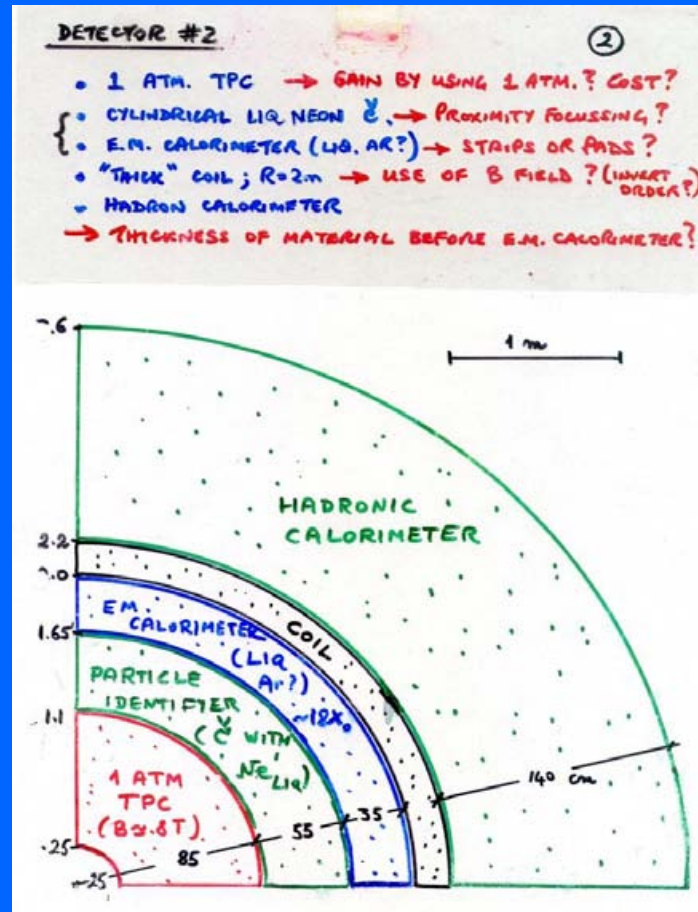 DETECTOR #2
②
• 1 ATM. TPC → GAIN BY USING 1 ATM.? COST?
• CYLINDRICAL LIQ NEON Č. → PROXIMITY FOCUSSING?
• E.M. CALORIMETER (LIQ. AR?) → STRIPS OR PADS?
• "THICK" COIL; R=2m → USE OF B FIELD? (INVERT
ORDER?)
• HADRON CALORIMETER
→ THICKNESS OF MATERIAL BEFORE E.M. CALORIMETER?
.6
1 m
HADRONIC
CALORIMETER
2.2
.0
COIL
E.M.
CALORIMETER
(LIQ
Ar?)
~18X₀
1.65
PARTICLE
IDENTIFIER
(Č WITH
Ne LIQ)
1.1
1 ATM
TPC
(B≈.8T)
.25
25
85
55
35
140 cm